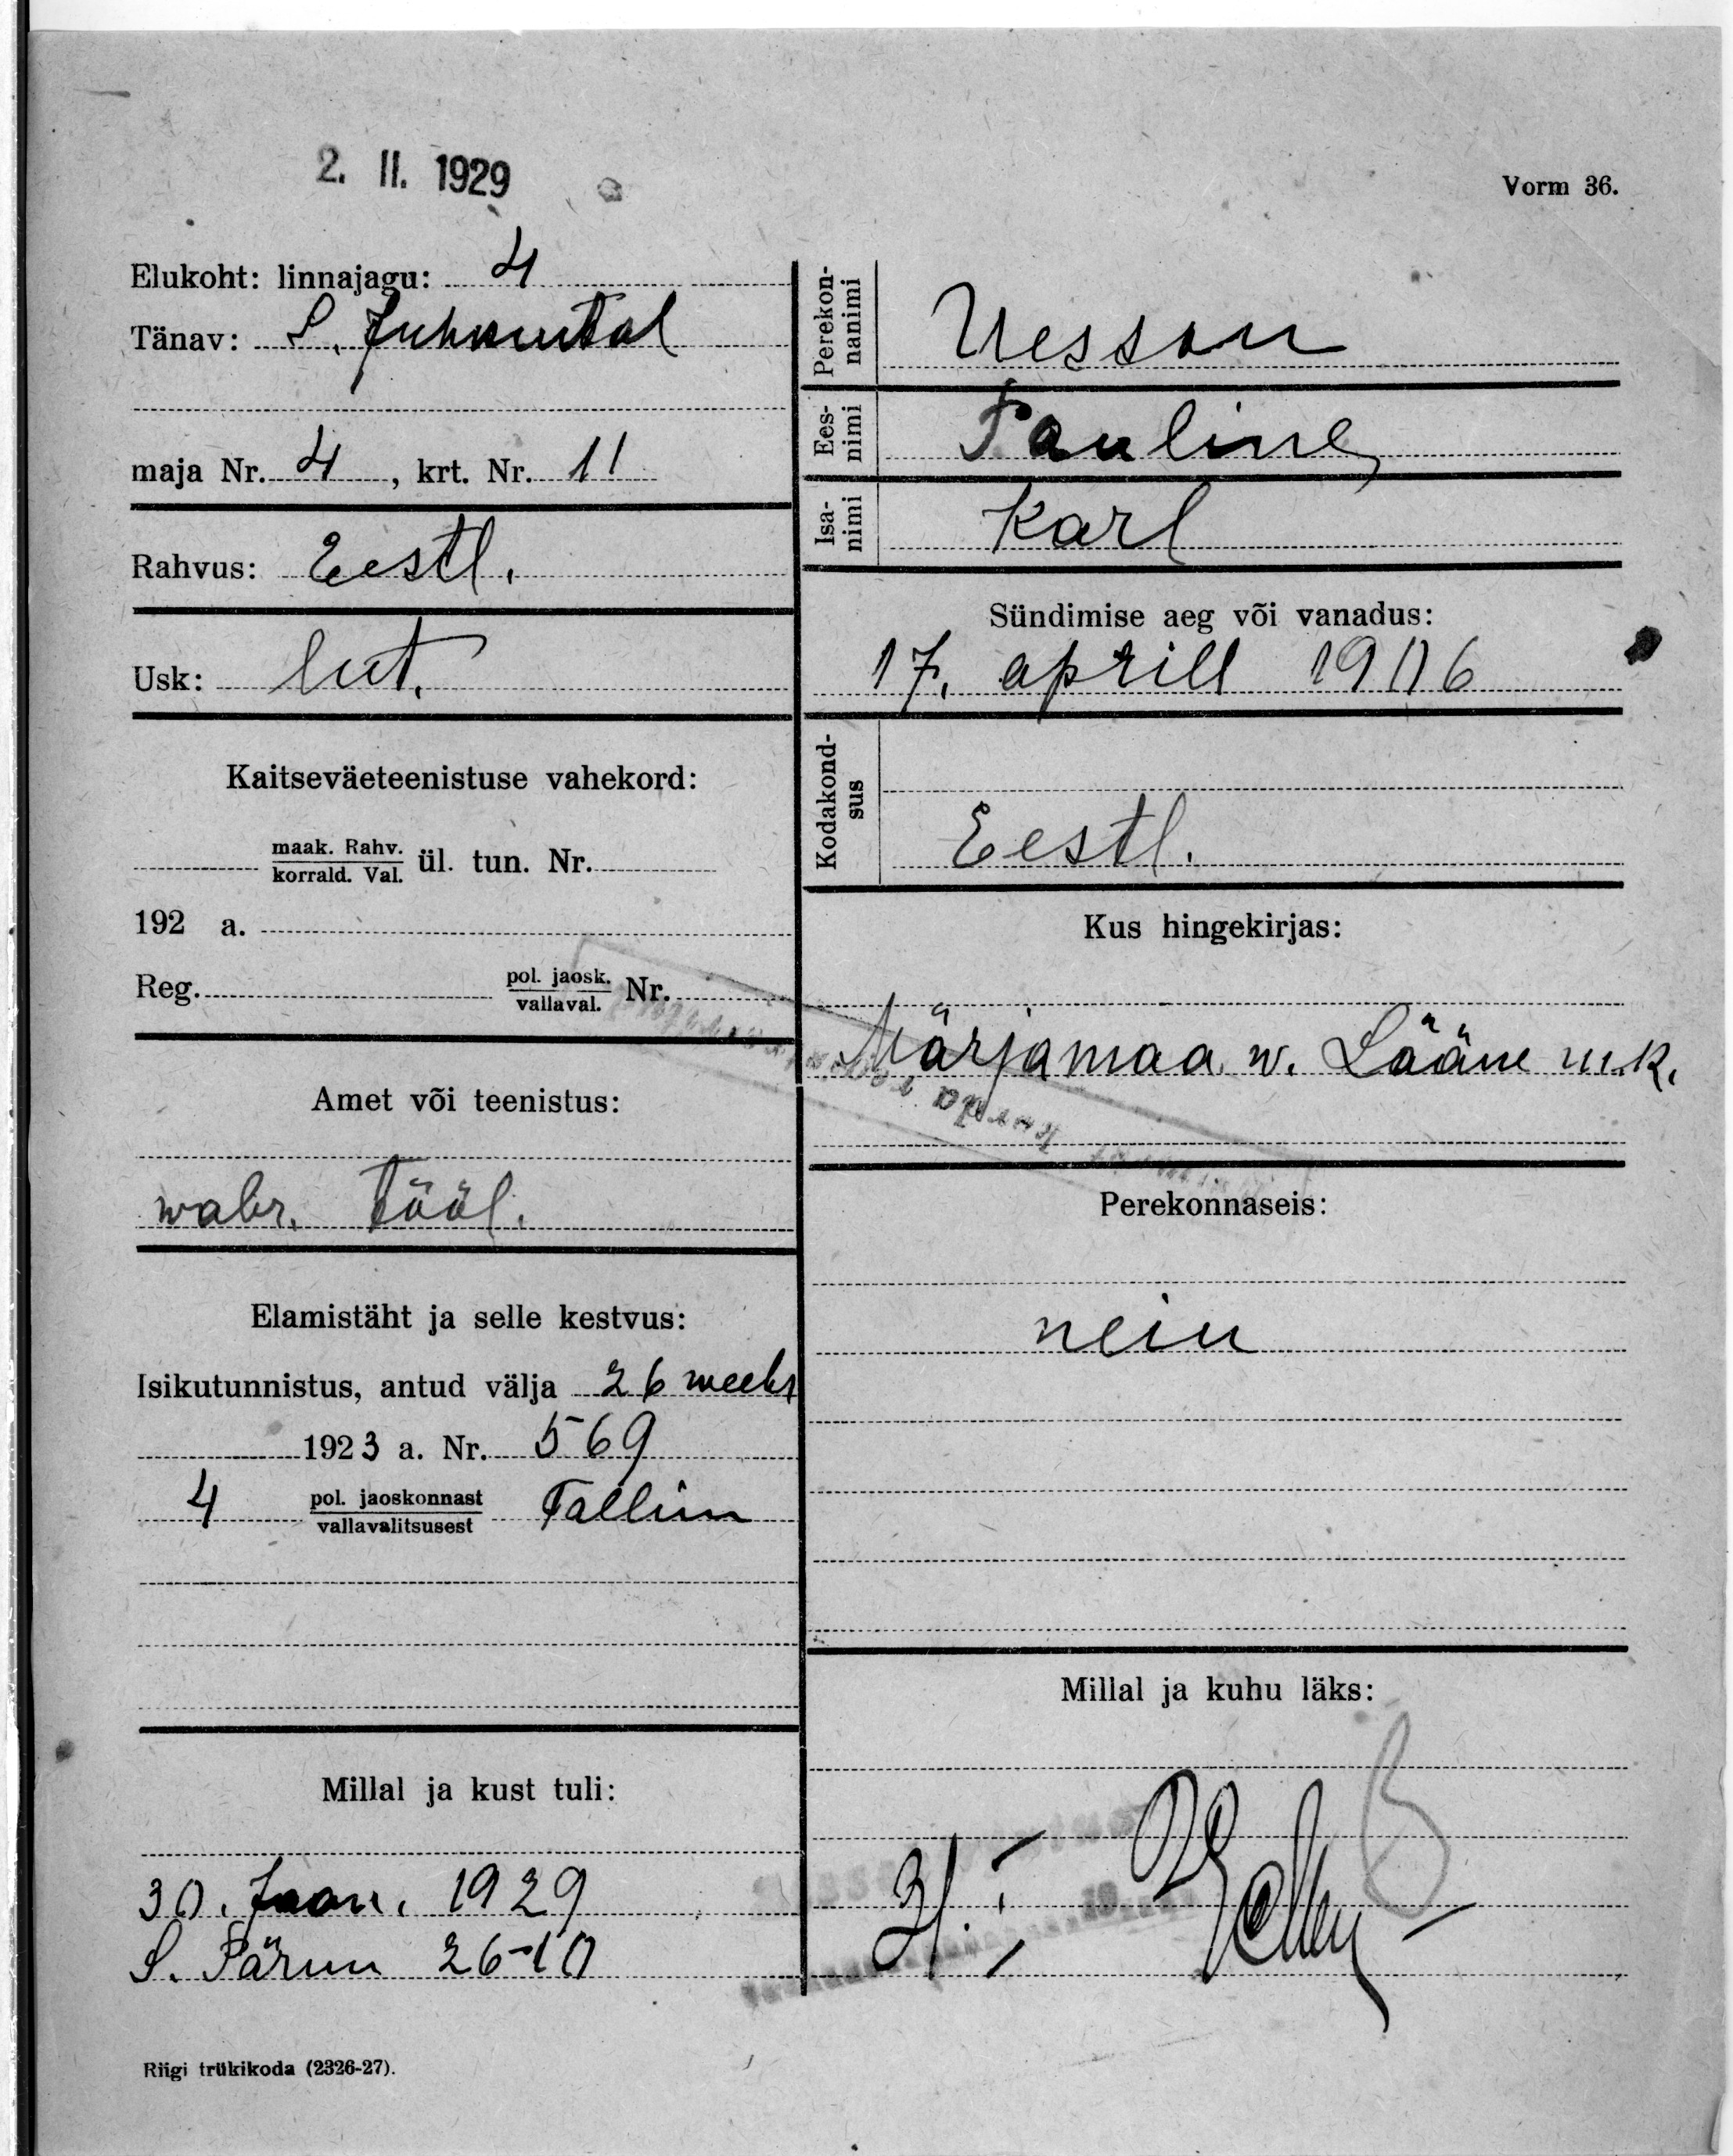 2. II. 1929
Vorm 36.
Elukoht: linnajagu: 4
Tänav: S. Juhkental
maja Nr. 4, krt. Nr. 11
Rahvus: Eestl.
Usk: lut.
Kaitseväeteenistuse vahekord:
maak. Rahv.
korrald. Val.
ül. tun. Nr.
192 a.
Reg. pol. jaosk.
vallaval.
Nr.
Amet või teenistus:
wabr. tööl.
Elamistäht ja selle kestvus:
Isikutunnistus, antud välja 26 weebr
1923 a. Nr. 569
4 pol. jaoskonnast
vallavalitsusest
Tallinn
Millal ja kust tuli:
30. Jaan. 1929
S. Pärnu 26-10
Riigi trükikoda (2326-27).
Perekon-
nanimi
Uesson
Ees-
nimi
Pauline
Isa-
nimi
Karl
Sündimise aeg või vanadus:
17. aprill 1906
Kodakond-
sus
Eestl.
Kus hingekirjas:
Märjamaa w. Lääne m.k.
Perekonnaseis:
neiu
Millal ja kuhu läks: